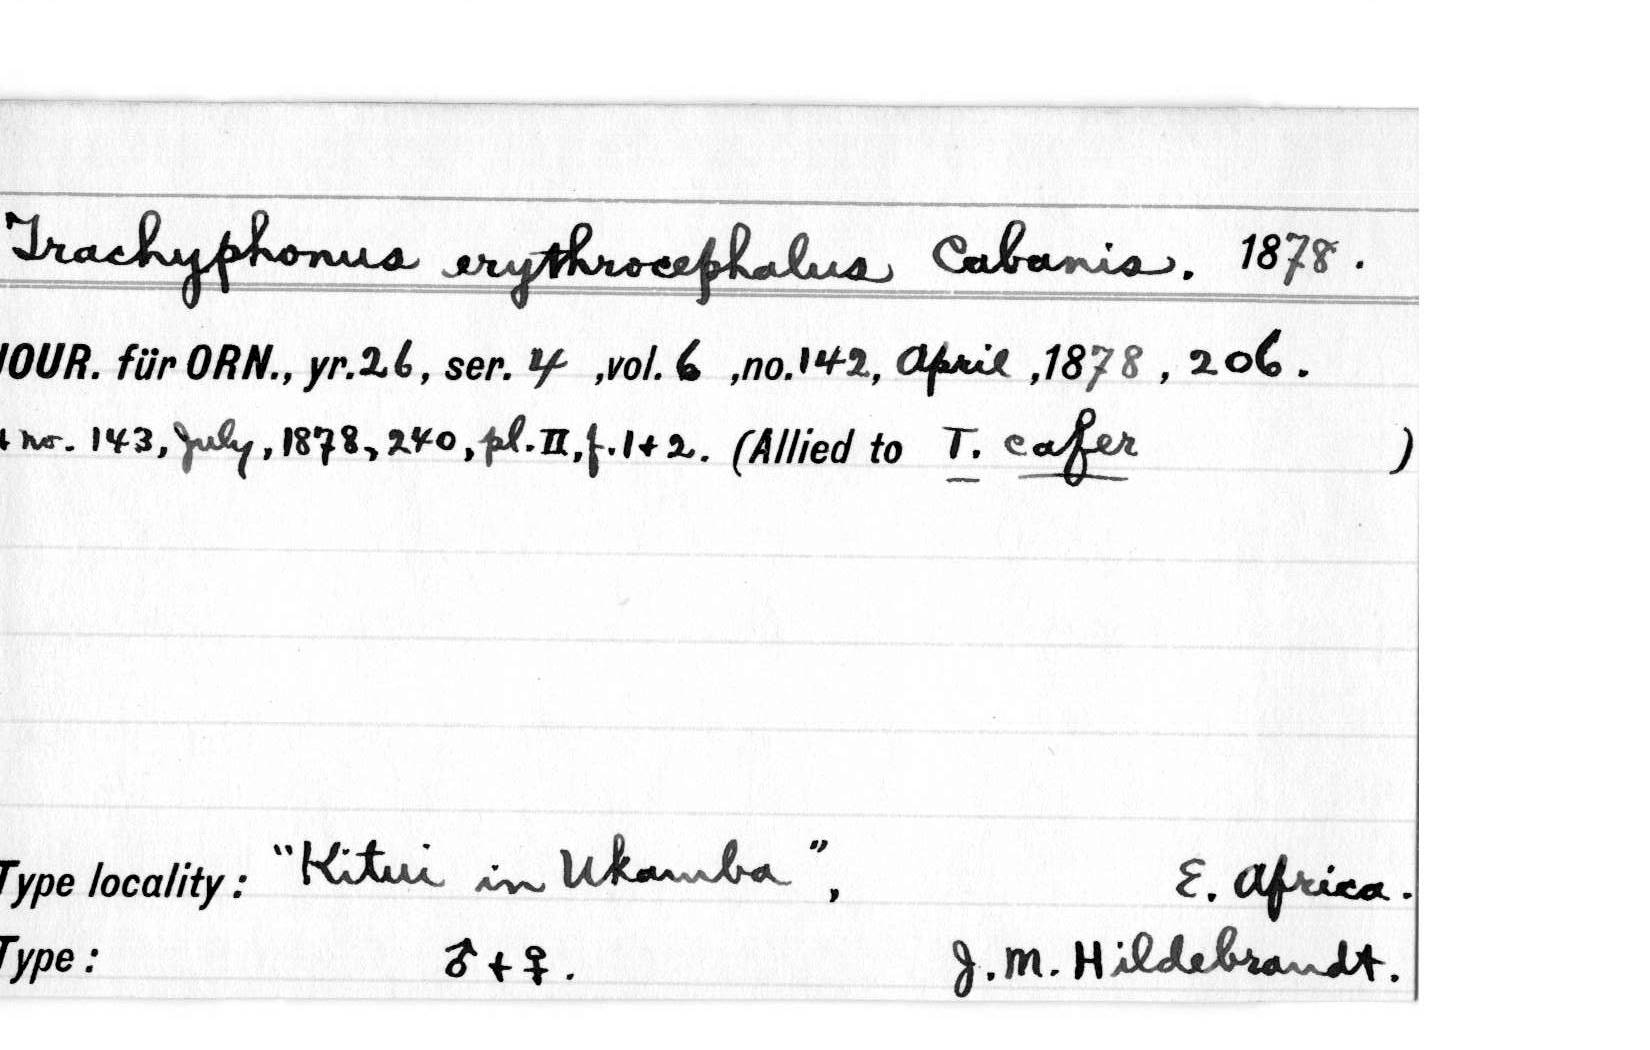 Trachyphonus erythrocephalus Cabanis. 1878.
JOUR. für ORN., yr. 26, ser. 4, vol. 6, no. 142, April, 1878, 206.
+ no. 143, July, 1878, 240, pl. II, f. 1+2. (Allied to T. cafer )
Type locality: "Kitui in Ukamba", E. Africa.
Type: ♂ + ♀. J. M. Hildebrandt.